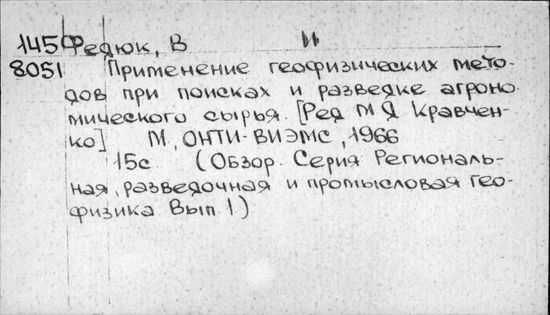 145 Федюк, В И
8051 Применение геофизических мето-
дов при поисках и разведке агроно-
мического сырья. [Ред М Я Кравчен-
ко] М, ОНТИ-ВИЭМС, 1966
15с. (Обзор. Серия Региональ-
ная, разведочная и промысловая гео-
физика Вып. 1)